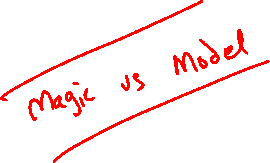 Magic vs Model